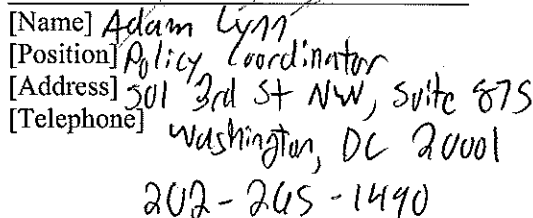 [Name] Adam Lynn
[Position] Policy Coordinator
[Address] 501 3rd St NW, Suite 875
[Telephone] Washington, DC 20001
202-265-1490